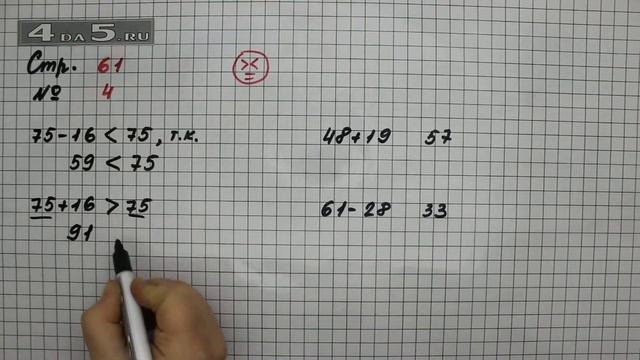 4DA5.RU
Стр. 61
№ 4
><
=
75-16 < 75, т.к.
59 < 75
75+16 > 75
91
48+19 57
61-28 33